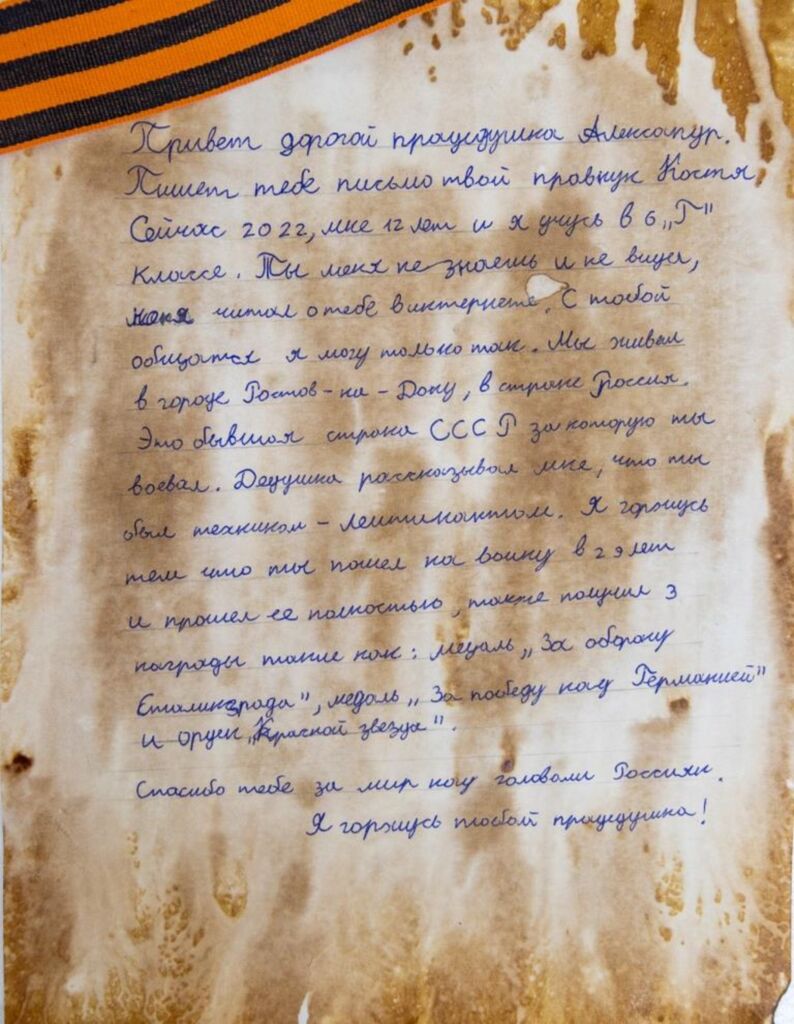 Привет дорогой прадедушка Александр.
Пишет тебе письмо твой правнук Костя,
Сейчас 2022, мне 12 лет и я учусь в 6 „Г"
классе. Ты меня не знаешь и не видел,
читал о тебе в интернете. С тобой
общатся я могу только так. Мы живём
в городе Ростов-на-Дону, в стране Россия.
Это бывшая страна СССР за которую ты
воевал. Дедушка рассказывал мне, что ты
был техником - лейтинантом. Я горжусь
тем что ты пошел на войну в 29 лет
и прошел её полностью, также получил 3
награды такие как: медаль „За оборону
Сталинграда", медаль „За победу над Германией"
и орден „Красной звезда".
Спасибо тебе за мир над головами России.
Я горжусь тобой прадедушка!